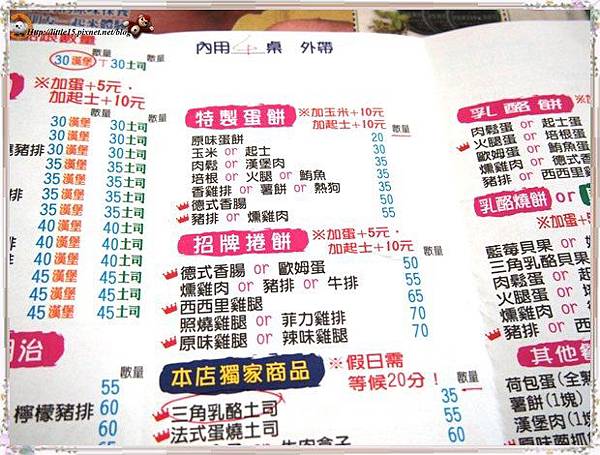 Http://little15.pixnet.net/blog
內用 桌 外帶
數量
30漢堡 30土司
※加蛋+5元.
加起士+10元
數量
30漢堡 30土司
30漢堡 30土司
30漢堡 30土司
豬排 30漢堡 30土司
35漢堡 35土司
35漢堡 35土司
35漢堡 35土司
35漢堡 35土司
40漢堡 40土司
40漢堡 40土司
45漢堡 45土司
45漢堡 45土司
數量
55
檸檬豬排 60
60
特製蛋餅
※加玉米+10元
加起士+10元 數量
原味蛋餅 20
玉米 or 起士 30
肉鬆 or 漢堡肉 35
培根 or 火腿 or 鮪魚 35
香雞排 or 薯餅 or 熱狗 35
德式香腸 50
豬排 or 燻雞肉 55
招牌捲餅
※加蛋+5元.
加起士+10元 數量
德式香腸 or 歐姆蛋 50
燻雞肉 or 豬排 or 牛排 55
西西里雞腿 65
照燒雞腿 or 菲力雞排 70
原味雞腿 or 辣味雞腿 70
本店獨家商品
※假日需
等候20分！ 數量
三角乳酪土司 35
法式蛋燒土司 55
64
乳酪餅
肉鬆蛋 or 起士蛋
火腿蛋 or 培根蛋
歐姆蛋 or 鮪魚蛋
燻雞肉 or 德式香
豬排 or 西西里
乳酪燒餅 or
※加蛋+
藍莓貝果 or
三角乳酪貝果
肉鬆蛋 or
火腿蛋 or
燻雞肉 or
豬排 or 西
其他餐
荷包蛋(全熟
薯餅(1塊)
漢堡肉(1塊)